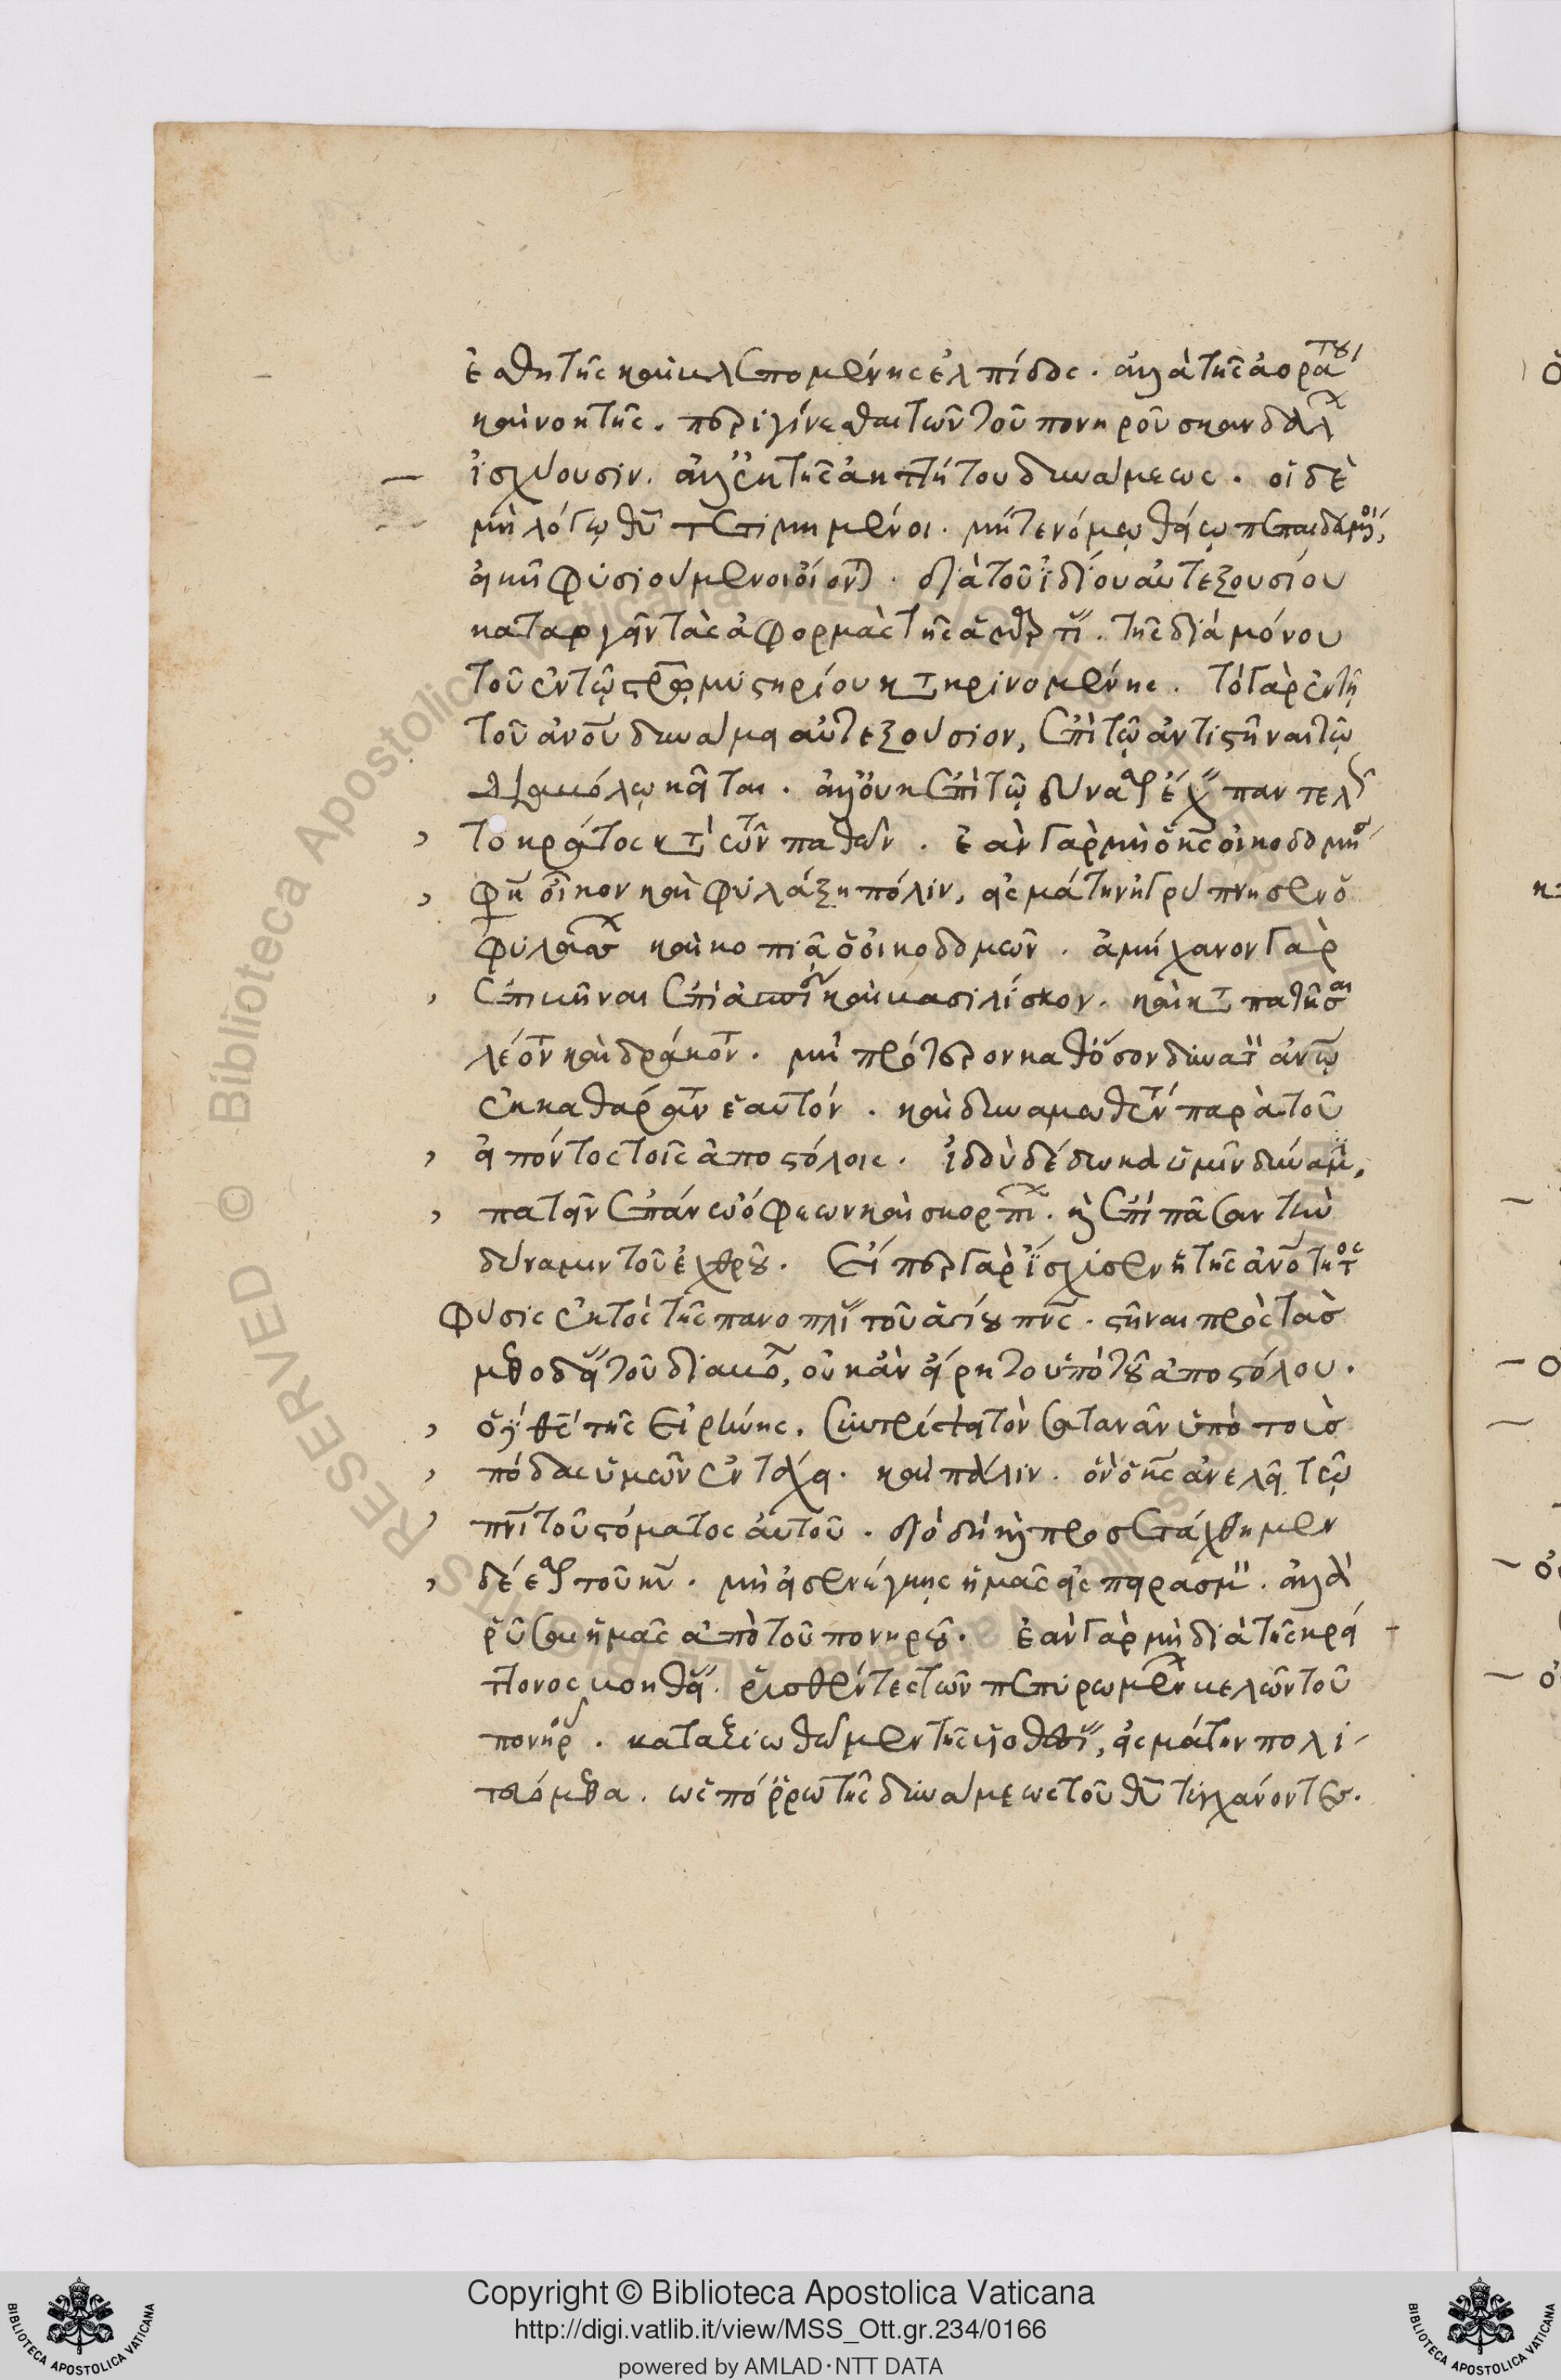 ἐσθητῆς καὶ βλεπομένης ἐλπίδος. ἀλλὰ τῆς ἀοράτου
καὶ νοητῆς. περιγίνεσθαι τῶν τοῦ πονηροῦ σκανδάλων
ἰσχύουσιν. ἀλλ' ἐκ τῆς ἀηττήτου δυνάμεως. οἱ δὲ
μὴ λόγῳ θυ τετιμημένοι. μήτε νόμῳ θείῳ πεπαιδευμένοι,
εἰκῆ φυσιούμενοι οἴονται. διὰ τοῦ ἰδίου αὐτεξουσίου
καταργεῖν τὰς ἀφορμὰς τῆς ἁμαρτίας. τῆς διὰ μόνου
τοῦ ἐν τῷ στρῳ μυστηρίου κατακρινομένης. τὸ γὰρ ἐν τῇ
τοῦ ἀνου δυνάμει αὐτεξούσιον, ἐπὶ τῷ ἀντιστῆναι τῷ
διαβόλῳ κεῖται. ἀλλ' οὐκ ἐπὶ τῷ δύνασθαι ἔχειν παντελῶς
τὸ κράτος κατὰ τῶν παθῶν. ἐὰν γὰρ μὴ ὁ κς οἰκοδομήσῃ
φη οἶκον καὶ φυλάξῃ πόλιν, εἰς μάτην ἠγρύπνησεν ὁ
φυλάσσων καὶ κοπιᾷ ὁ οἰκοδομῶν. ἀμήχανον γὰρ
ἐπιβῆναι ἐπὶ ἀσπίδα καὶ βασιλίσκον. καὶ καταπατῆσαι
λέοντα καὶ δράκοντα. μὴ πρότερον καθ' ὅσον δυνατὸν ἀνῳ
ἐκκαθάραντα ἑαυτόν. καὶ δυναμωθέντα παρὰ τοῦ
εἰπόντος τοῖς ἀποστόλοις. ἰδοὺ δέδωκα ὑμῖν δύναμιν,
πατεῖν ἐπάνω ὄφεων καὶ σκορπίων. καὶ ἐπὶ πᾶσαν τὴν
δύναμιν τοῦ ἐχθροῦ. Εἴπερ γὰρ ἴσχυσεν ἡ τῆς ἀνοτητος
φύσις ἐκτὸς τῆς πανοπλίας τοῦ ἁγίου πνς. στῆναι πρὸς τὰς
μεθοδείας τοῦ διαβόλου, οὐκ ἂν εἴρητο ὑπὸ τοῦ ἀποστόλου.
ὁ δὲ θς τῆς εἰρήνης. συντρίψει τὸν σατανᾶν ὑπὸ τοὺς
πόδας ὑμῶν ἐν τάχει. καὶ πάλιν. ὃν ὁ κς ἀνελεῖ τῷ
πνι τοῦ στόματος αὐτοῦ. διὸ δὴ καὶ προσετάχθημεν
δέεσθαι τοῦ κυ. μὴ εἰσενέγκῃς ἡμᾶς εἰς πειρασμόν. ἀλλὰ
ῥῦσαι ἡμᾶς ἀπὸ τοῦ πονηροῦ. ἐὰν γὰρ μὴ διὰ τῆς κρεί
ττονος βοηθείας. ῥυσθέντες τῶν πεπυρωμένων βελῶν τοῦ
πονηροῦ. καταξιωθῶμεν τῆς υἱοθεσίας, εἰς μάτην πολι-
τευόμεθα. ὡς πόρρω τῆς δυνάμεως τοῦ θυ τυγχάνοντες.
Copyright © Biblioteca Apostolica Vaticana
http://digi.vatlib.it/view/MSS_Ott.gr.234/0166
powered by AMLAD·NTT DATA